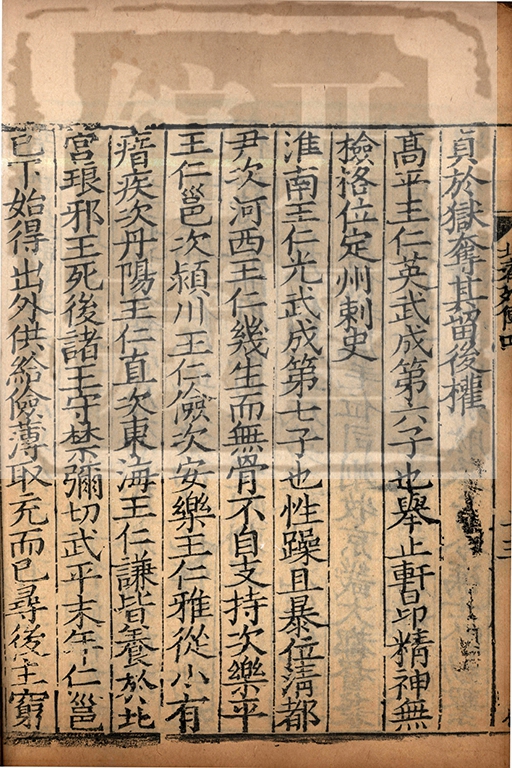 貞於獄奪其留後權
髙平王仁英武成第六子也舉止軒昂精神無
檢洛位定州刺史
淮南王仁光武成第七子也性躁且暴位清都
尹次河西王仁幾生而無骨不自支持次樂平
王仁邕次潁川王仁儉次安樂王仁雅從小有
瘖疾次丹陽王仁直次東海王仁謙皆養於北
宮琅邪王死後諸王守禁彌切武平末年仁邕
已下始得出外供給儉薄取充而已尋後主窮